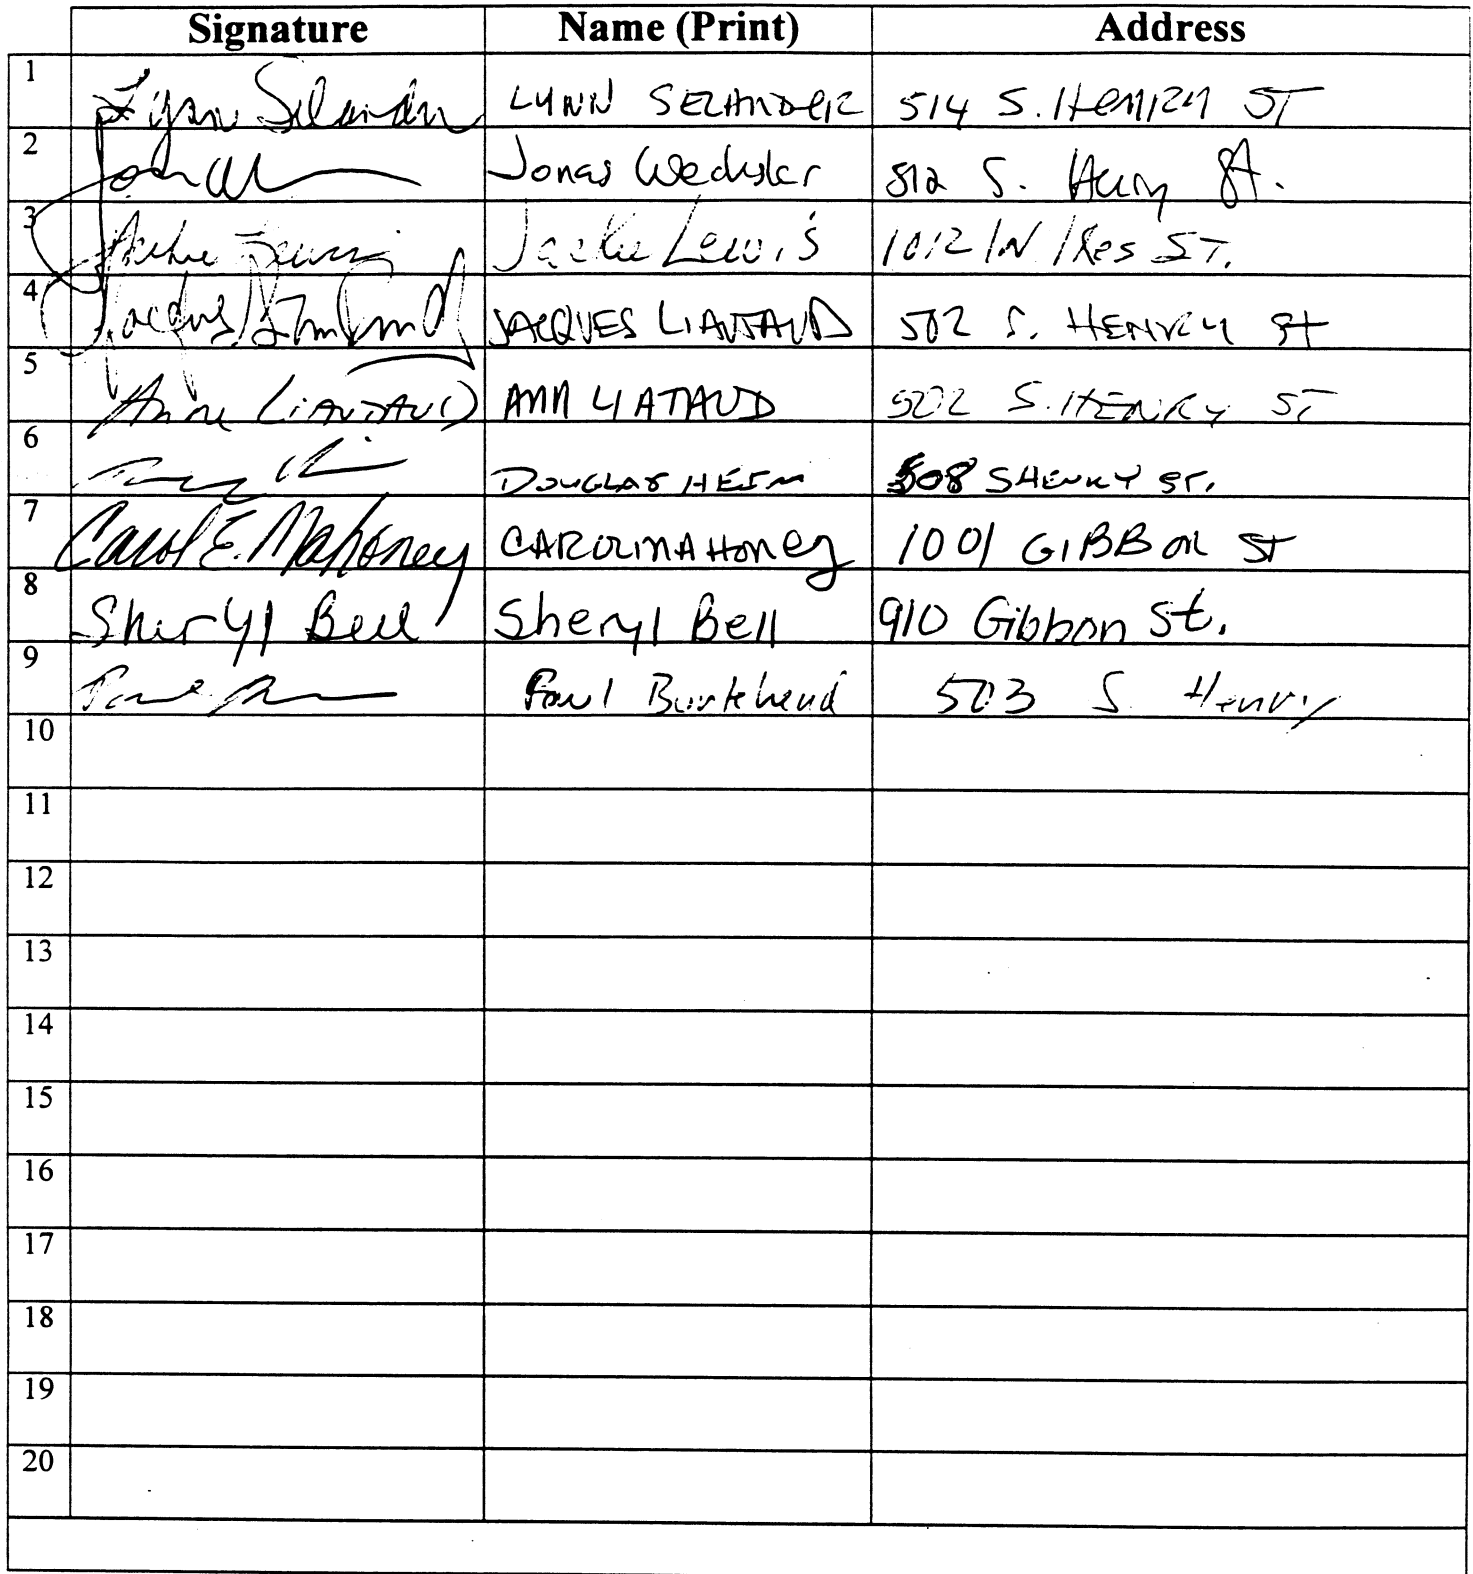 Signature Name (Print) Address
1 Lynn Selander LYNN SELANDER 514 S. HENRY ST
2 Jonas Wechsler 512 S. Henry St.
3 Jackie Lewis Jackie Lewis 1012 ST.
4 Jacques JACQUES LIAUTAUD 502 S. HENRY St
5 Anne LIAUTAUD ANN LIATAUD 502 S. HENRY ST
6 DOUGLAS HEIM 508 S HENRY ST.
7 Carol E. Mahoney CAROL MAHONEY 1001 GIBBON ST
8 Sheryl Bell Sheryl Bell 910 Gibbon St.
9 Paul Paul Burkhead 503 S. Henry
10
11
12
13
14
15
16
17
18
19
20